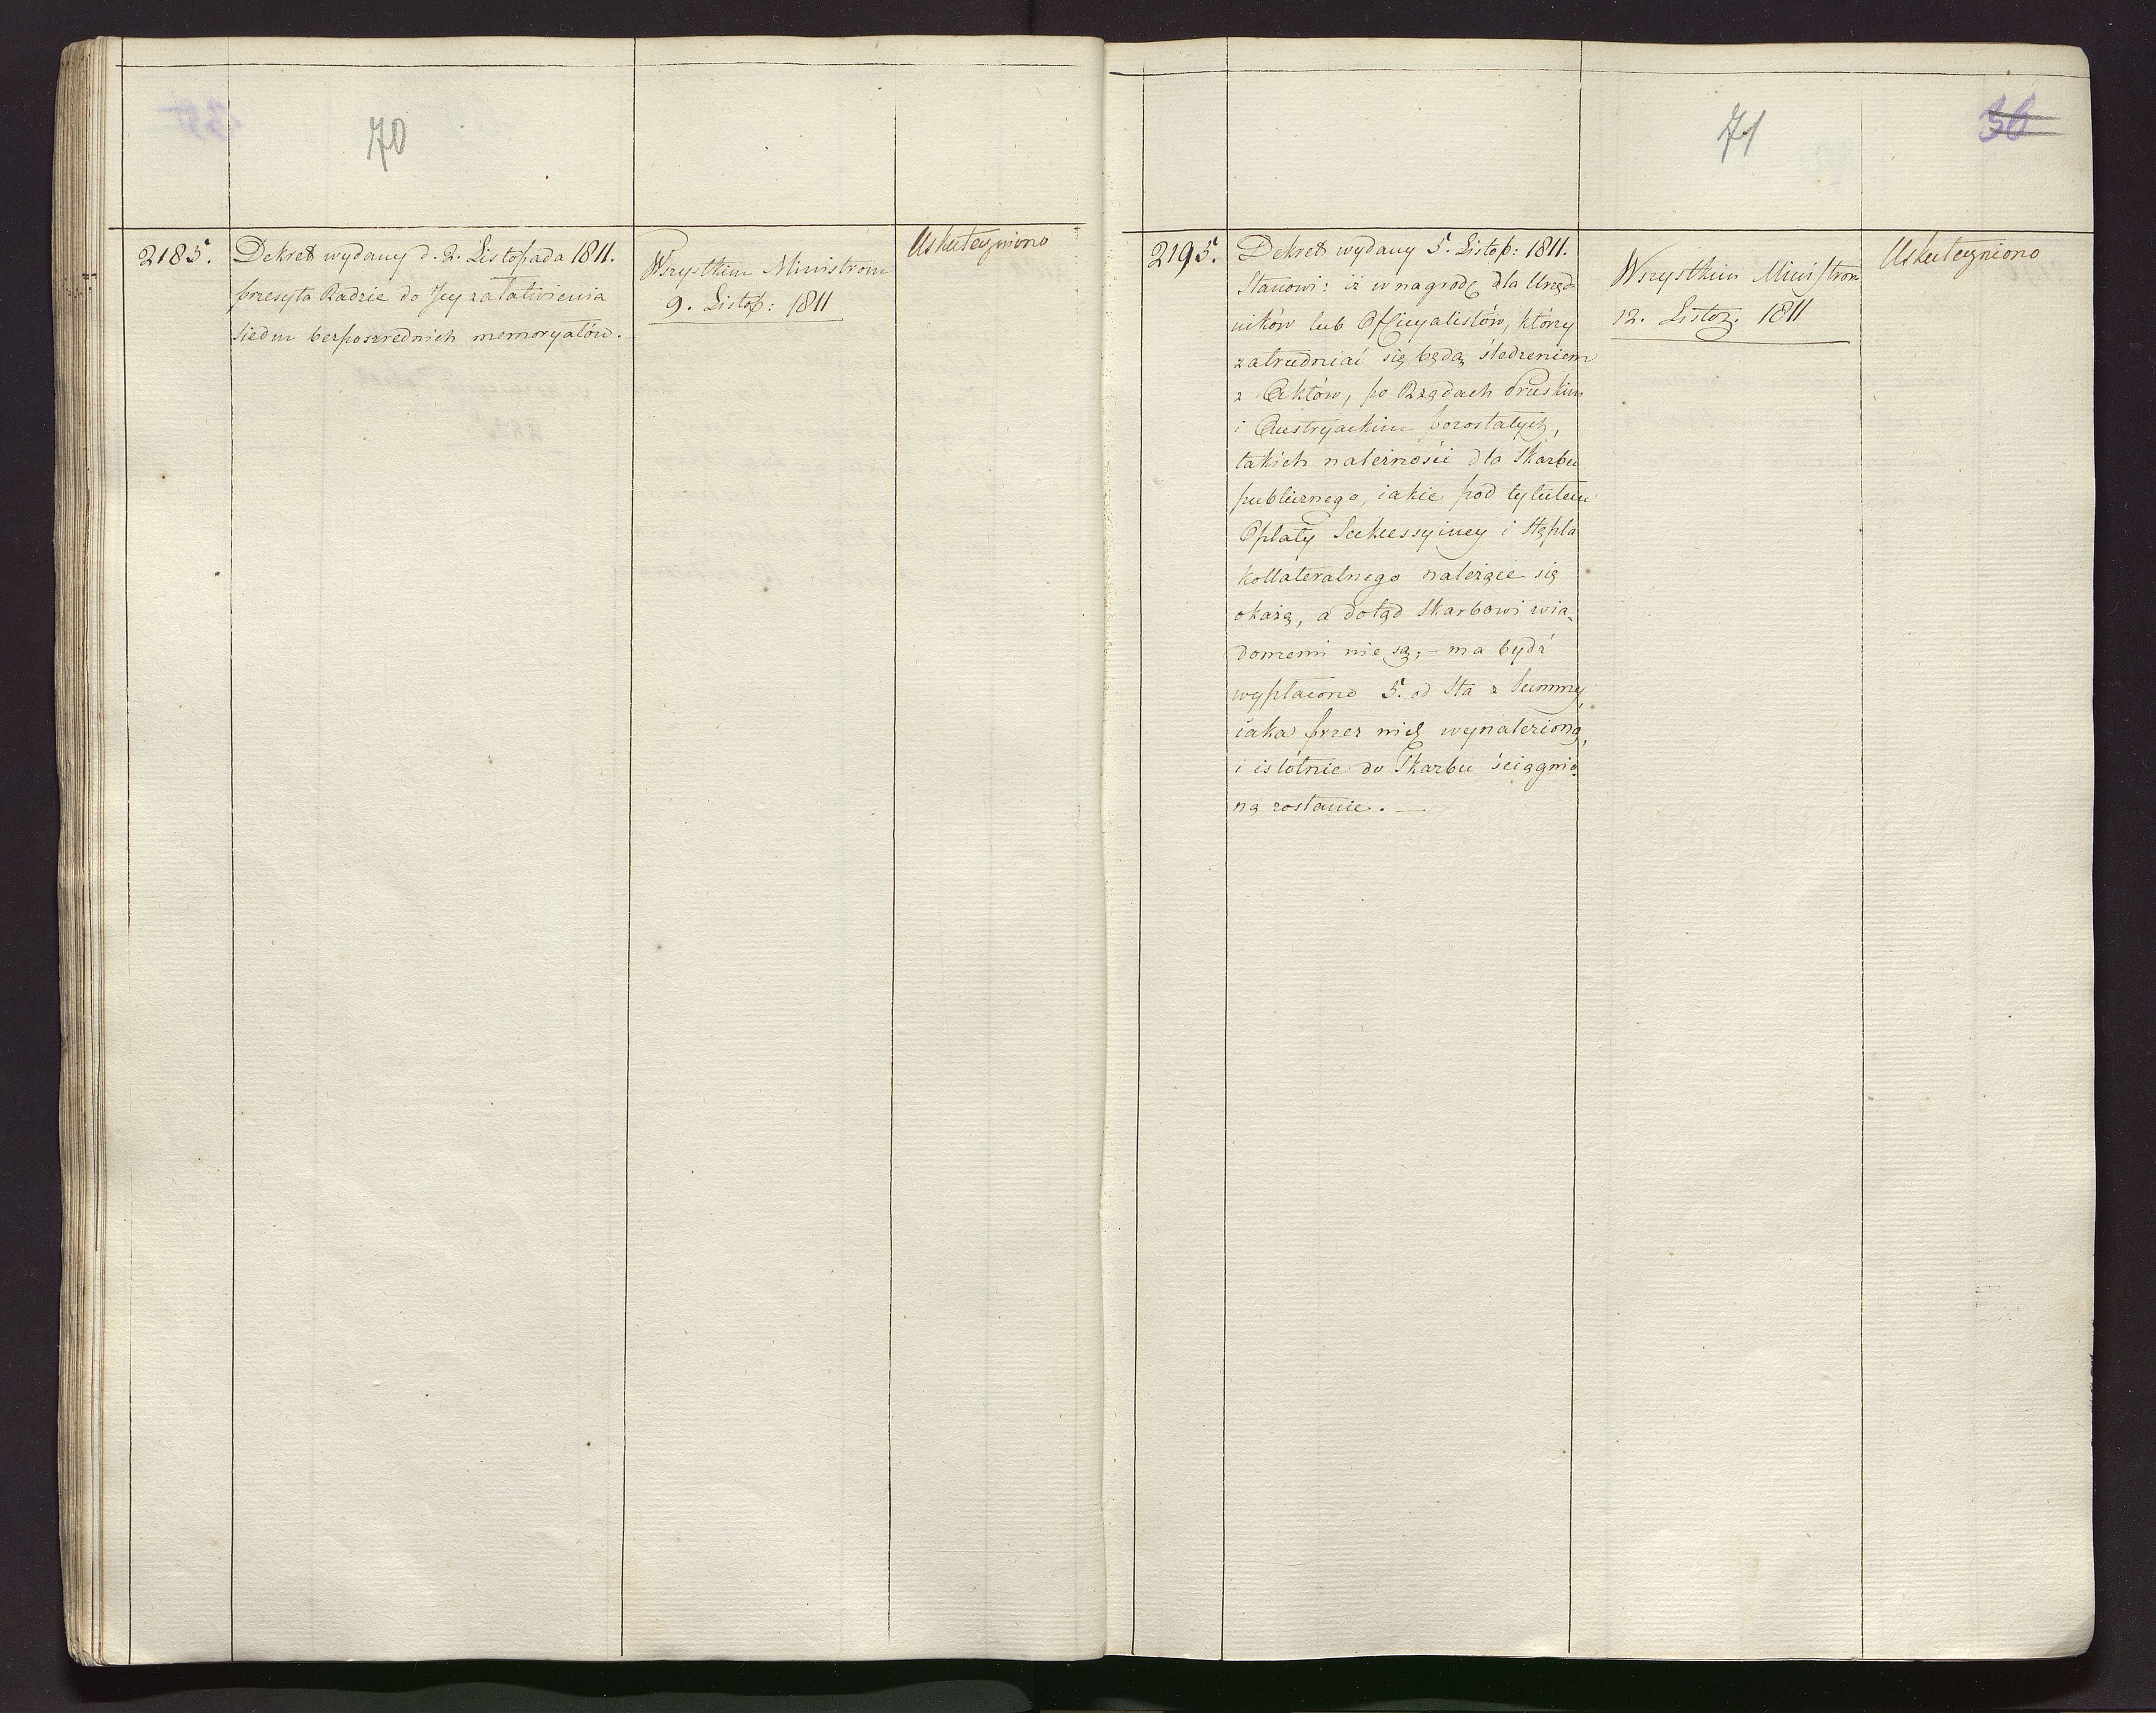 70
2185.
Dekret wydany d. 2. Listopada 1811.
przesyła Radzie do Jey załatwienia
siedm bezpośrednich memoryałów.
Wszystkim Ministrom
9. Listop: 1811
Uskuteczniono
71
36
2195.
Dekret wydany 5. Listop: 1811.
Stanowi: iż w nagrodę dla Urzęd-
ników lub Officyalistów, którzy
zatrudniać się będą śledzeniem
z Aktów, po Rządach Pruskim
i Austryackim pozostałych,
takich należności dla Skarbu
publicznego, iakie pod tytułem
Opłaty Sukcessyiney i Stępla
kollateralnego należące się
okażą, a dotąd Skarbowi wia-
domemi nie są; – ma bydź
wypłacono 5. od Sta z Summy,
iaka przez nich wynalezioną,
i istotnie do Skarbu ściągnio-
ną zostanie. —
Wszystkim Ministrom
12. Listop. 1811
Uskuteczniono